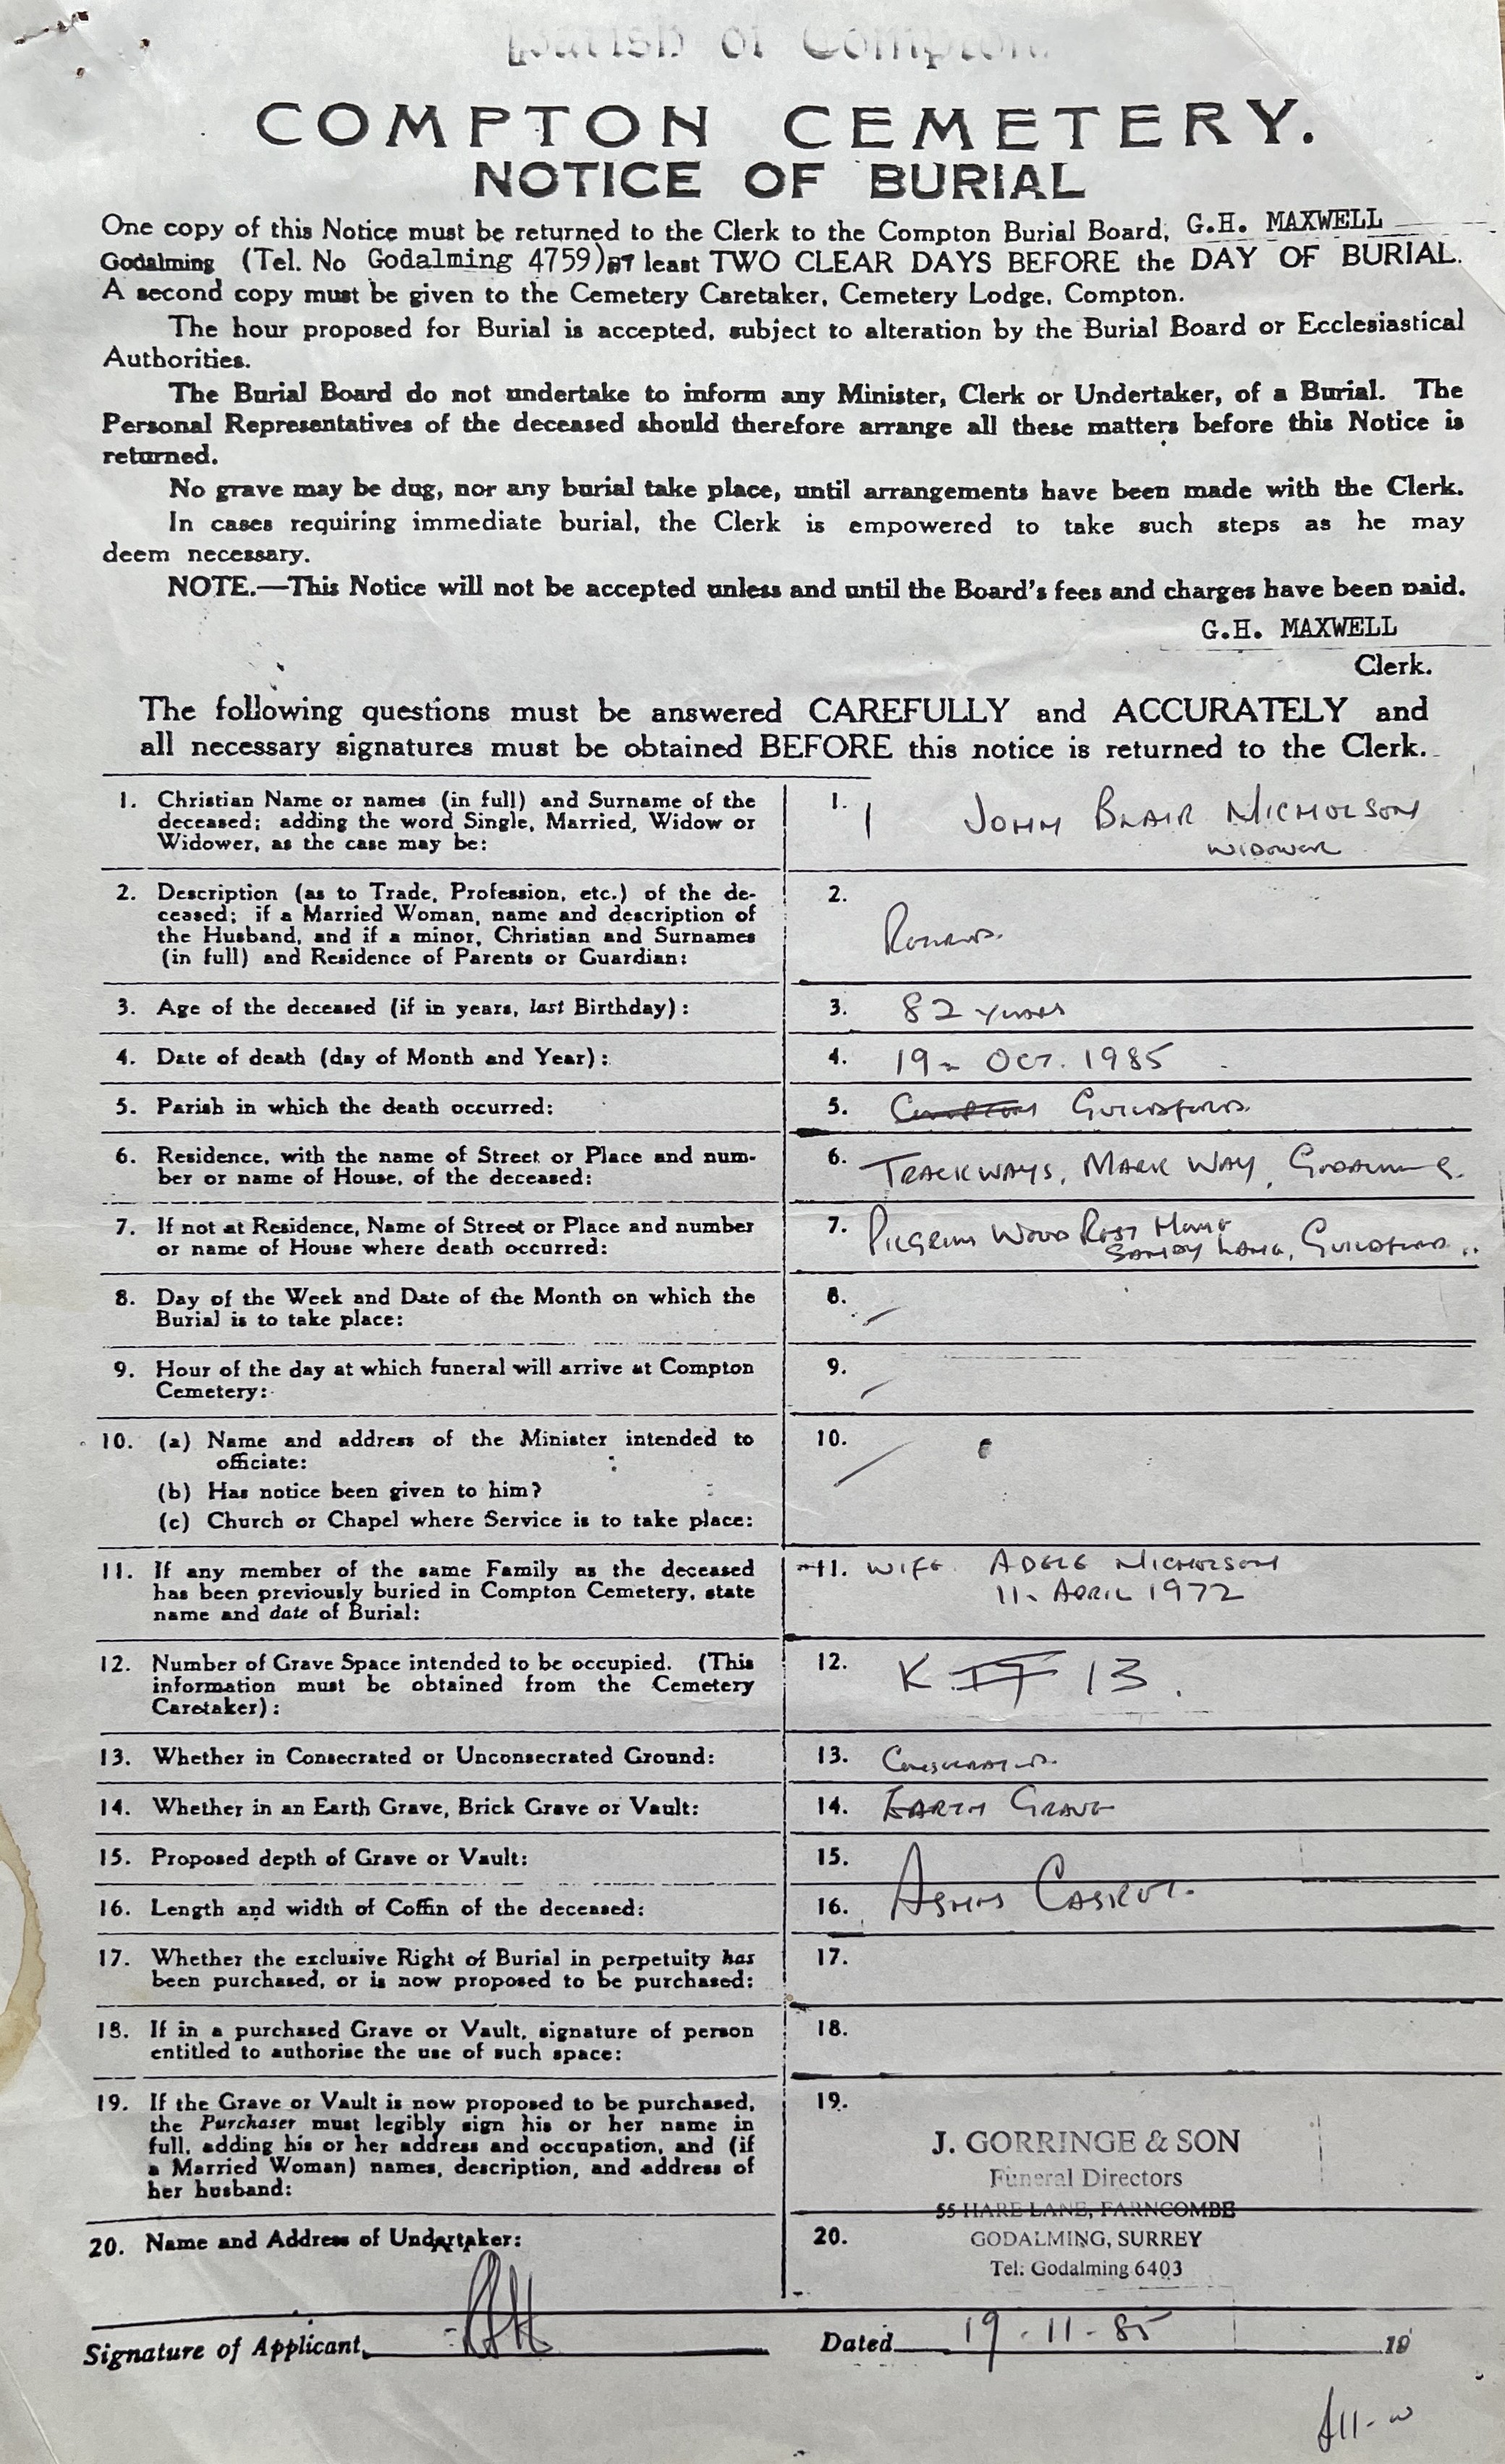 Parish of Compton.
COMPTON CEMETERY.
NOTICE OF BURIAL
One copy of this Notice must be returned to the Clerk to the Compton Burial Board, G.H. MAXWELL
Godalming (Tel. No Godalming 4759) AT least TWO CLEAR DAYS BEFORE the DAY OF BURIAL.
A second copy must be given to the Cemetery Caretaker, Cemetery Lodge, Compton.
The hour proposed for Burial is accepted, subject to alteration by the Burial Board or Ecclesiastical
Authorities.
The Burial Board do not undertake to inform any Minister, Clerk or Undertaker, of a Burial. The
Personal Representatives of the deceased should therefore arrange all these matters before this Notice is
returned.
No grave may be dug, nor any burial take place, until arrangements have been made with the Clerk.
In cases requiring immediate burial, the Clerk is empowered to take such steps as he may
deem necessary.
NOTE.—This Notice will not be accepted unless and until the Board's fees and charges have been paid.
G.H. MAXWELL
Clerk.
The following questions must be answered CAREFULLY and ACCURATELY and
all necessary signatures must be obtained BEFORE this notice is returned to the Clerk.
1. Christian Name or names (in full) and Surname of the
deceased; adding the word Single, Married, Widow or
Widower, as the case may be:
1. JOHN BLAIR NICHOLSON
WIDOWER
2. Description (as to Trade, Profession, etc.) of the de-
ceased; if a Married Woman, name and description of
the Husband, and if a minor, Christian and Surnames
(in full) and Residence of Parents or Guardian:
2.
RETIRED.
3. Age of the deceased (if in years, last Birthday):
3. 82 YEARS
4. Date of death (day of Month and Year):
4. 19 OCT. 1985
5. Parish in which the death occurred:
5. COMPTON GUILDFORD.
6. Residence, with the name of Street or Place and num-
ber or name of House, of the deceased:
6. TRACKWAYS, MARK WAY, GODALMING.
7. If not at Residence, Name of Street or Place and number
or name of House where death occurred:
7. PILGRIM WOOD REST HOME
SANDY LANE, GUILDFORD..
8. Day of the Week and Date of the Month on which the
Burial is to take place:
8.
9. Hour of the day at which funeral will arrive at Compton
Cemetery:
9.
10. (a) Name and address of the Minister intended to
officiate:
(b) Has notice been given to him?
(c) Church or Chapel where Service is to take place:
10.
11. If any member of the same Family as the deceased
has been previously buried in Compton Cemetery, state
name and date of Burial:
11. WIFE. ADELE NICHOLSON
11. APRIL 1972
12. Number of Grave Space intended to be occupied. (This
information must be obtained from the Cemetery
Caretaker):
12. K 13.
13. Whether in Consecrated or Unconsecrated Ground:
13. CONSECRATED.
14. Whether in an Earth Grave, Brick Grave or Vault:
14. EARTH GRAVE
15. Proposed depth of Grave or Vault:
15.
16. Length and width of Coffin of the deceased:
16. ASHES CASKET.
17. Whether the exclusive Right of Burial in perpetuity has
been purchased, or is now proposed to be purchased:
17.
18. If in a purchased Grave or Vault, signature of person
entitled to authorise the use of such space:
18.
19. If the Grave or Vault is now proposed to be purchased,
the Purchaser must legibly sign his or her name in
full, adding his or her address and occupation, and (if
a Married Woman) names, description, and address of
her husband:
19.
J. GORRINGE & SON
Funeral Directors
55 HARE LANE, FARNCOMBE
20. Name and Address of Undertaker:
20. GODALMING, SURREY
Tel: Godalming 6403
Signature of Applicant
Dated 19.11.85 19